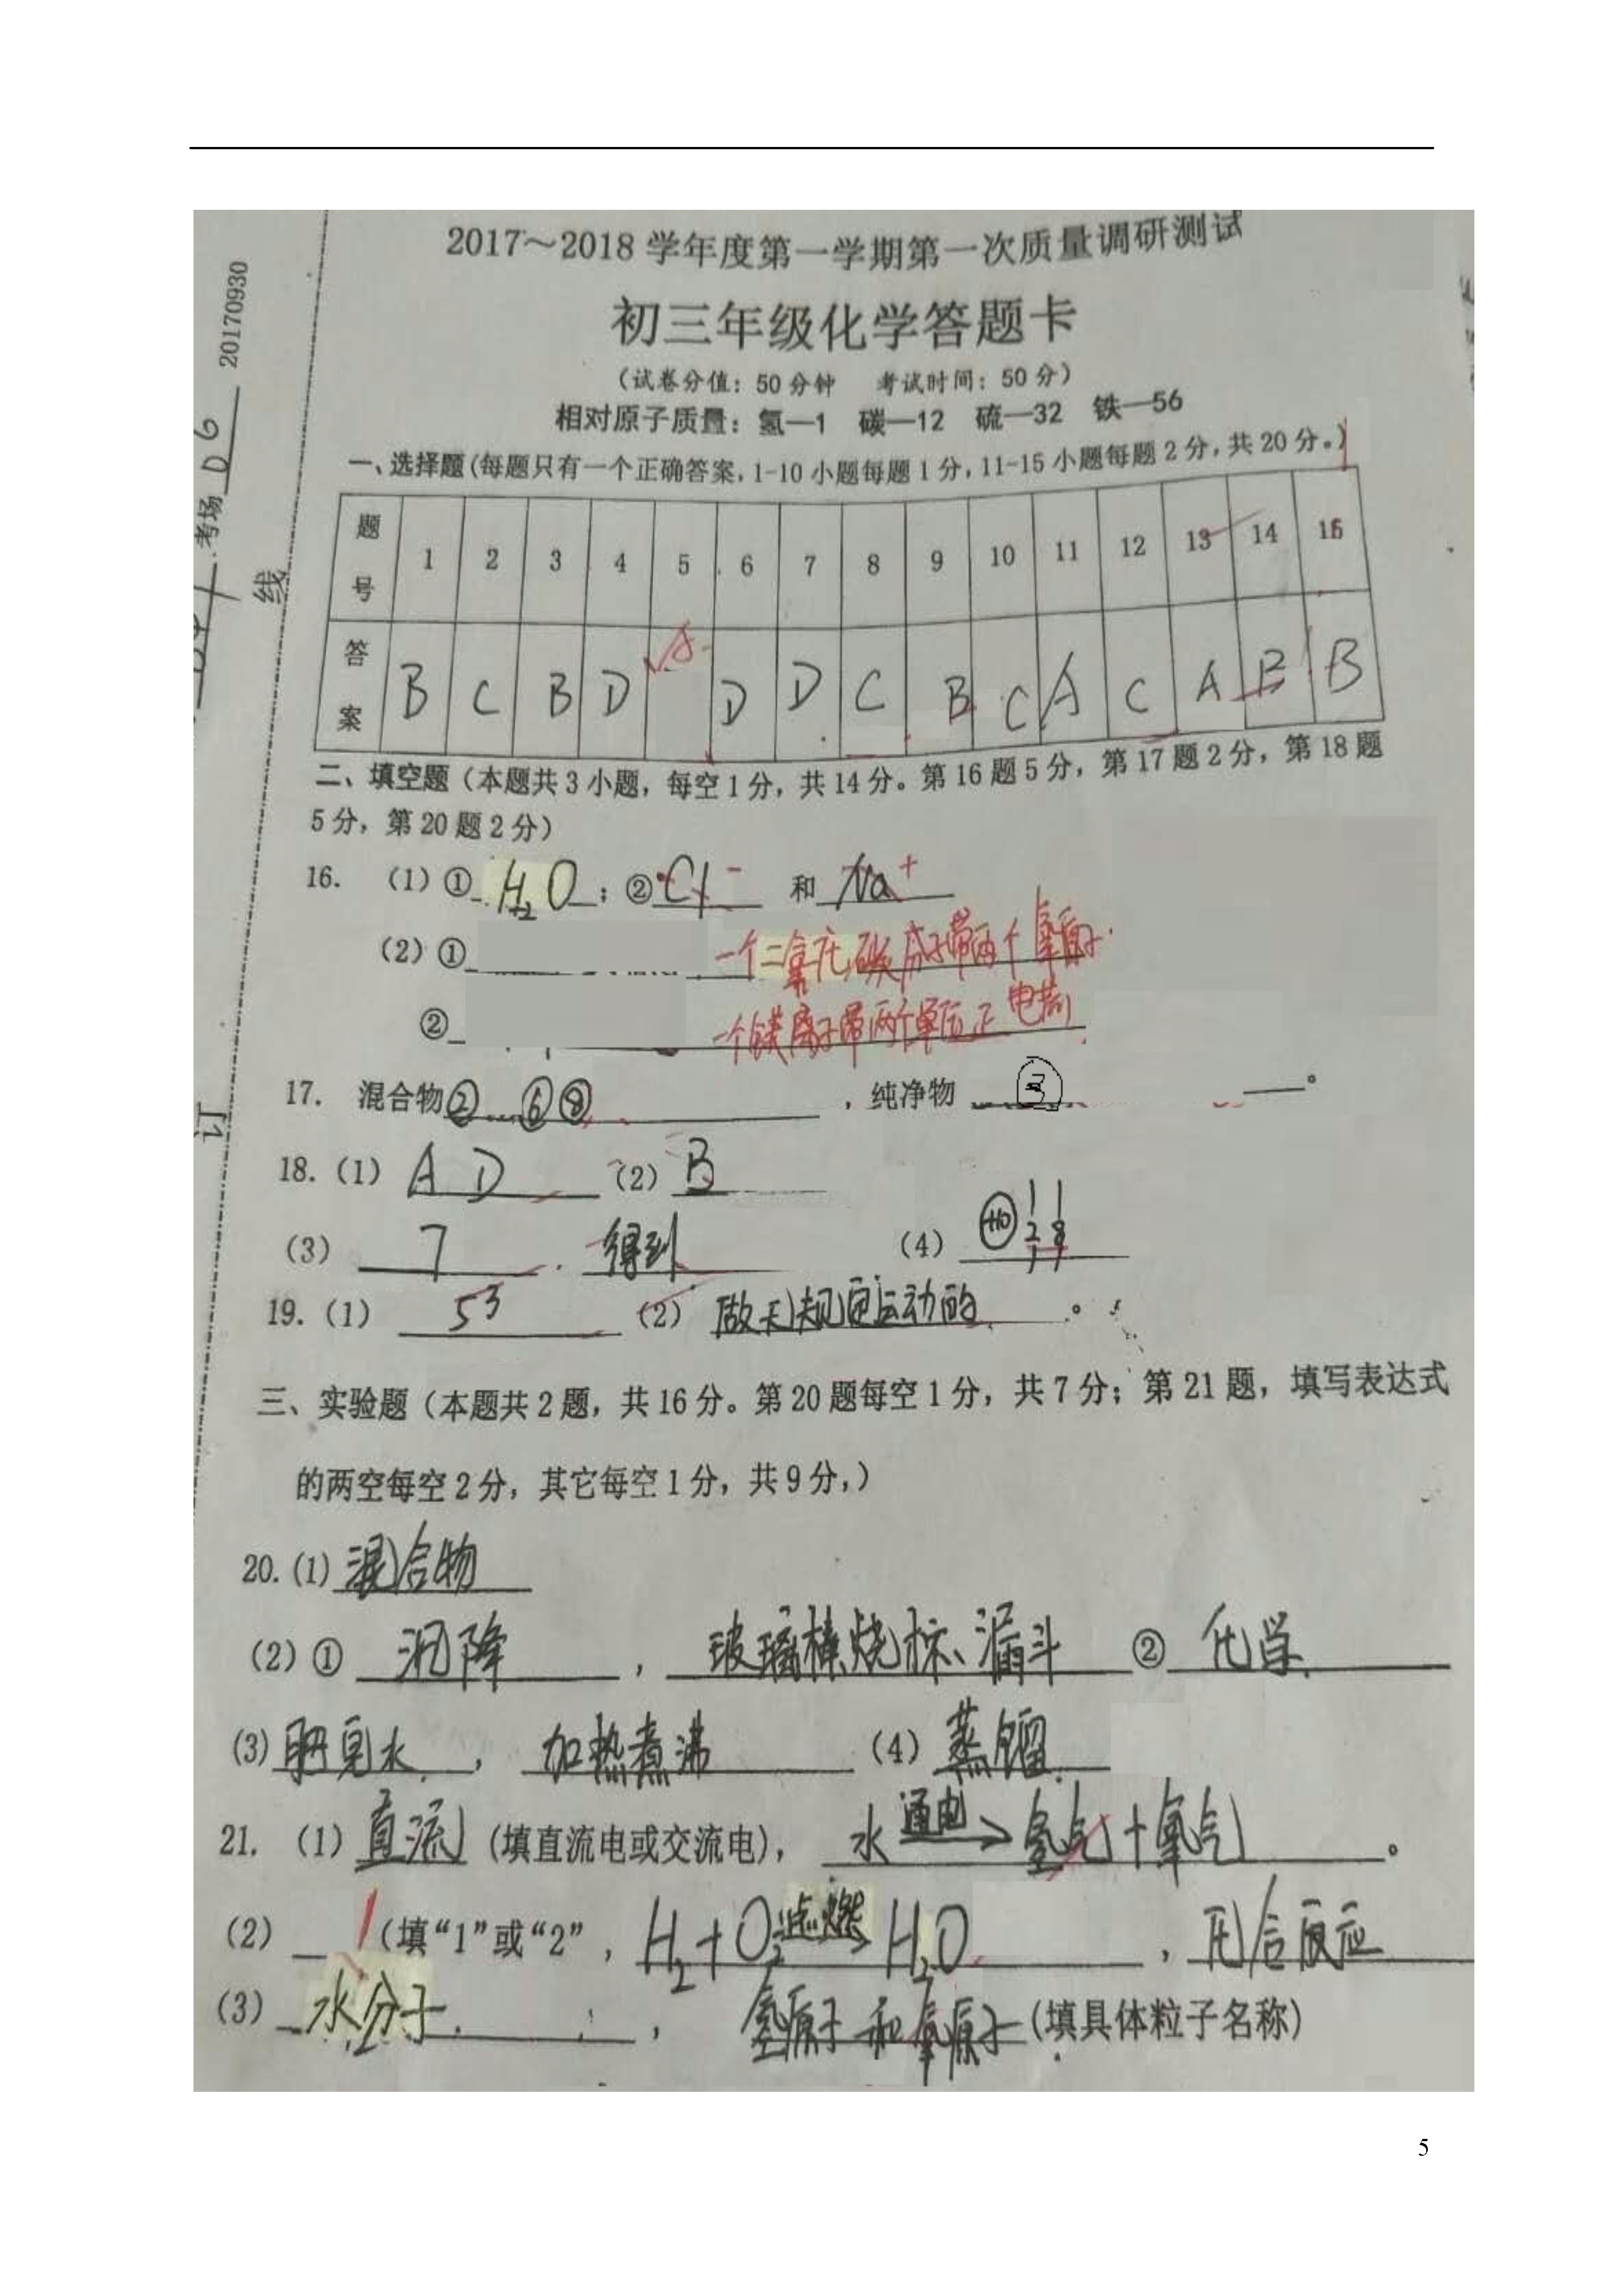 2017～2018 学年度第一学期第一次质量调研测试
初三年级化学答题卡
（试卷分值：50 分钟 考试时间：50 分）
相对原子质量：氢—1 碳—12 硫—32 铁—56
一、选择题(每题只有一个正确答案,1-10 小题每题 1 分,11-15 小题每题 2 分,共 20 分。)
题号 1 2 3 4 5 6 7 8 9 10 11 12 13 14 15
答案 B C B D A D D C B C A C A B B
二、填空题（本题共 3 小题，每空 1 分，共 14 分。第 16 题 5 分，第 17 题 2 分，第 18 题
5 分，第 20 题 2 分）
16. （1）① H₂O ；② Cl⁻ 和 Na⁺
（2）① 一个二氧化碳分子带两个氧原子.
② 一个镁离子带两个单位正电荷
17. 混合物 ② ⑥ ⑧ ，纯净物 ③ 。
18.（1） A D （2） B
（3） 7 . 得到 （4） +10 2 8
19.（1） 53 （2） 做无规则运动的 。
三、实验题（本题共 2 题，共 16 分。第 20 题每空 1 分，共 7 分；第 21 题，填写表达式
的两空每空 2 分，其它每空 1 分，共 9 分，）
20.(1) 混合物
（2）① 沉降 ， 玻璃棒烧杯、漏斗 ② 化学
（3）肥皂水 ， 加热煮沸 （4） 蒸馏
21. （1）直流 （填直流电或交流电）， 水 通电→ 氢气+氧气 。
（2） 1 （填“1”或“2”， H₂+O₂ 点燃→ H₂O ， 化合反应
（3） 水分子 ， 氢原子和氧原子 （填具体粒子名称）
考场 D6 20170930
线
订
5